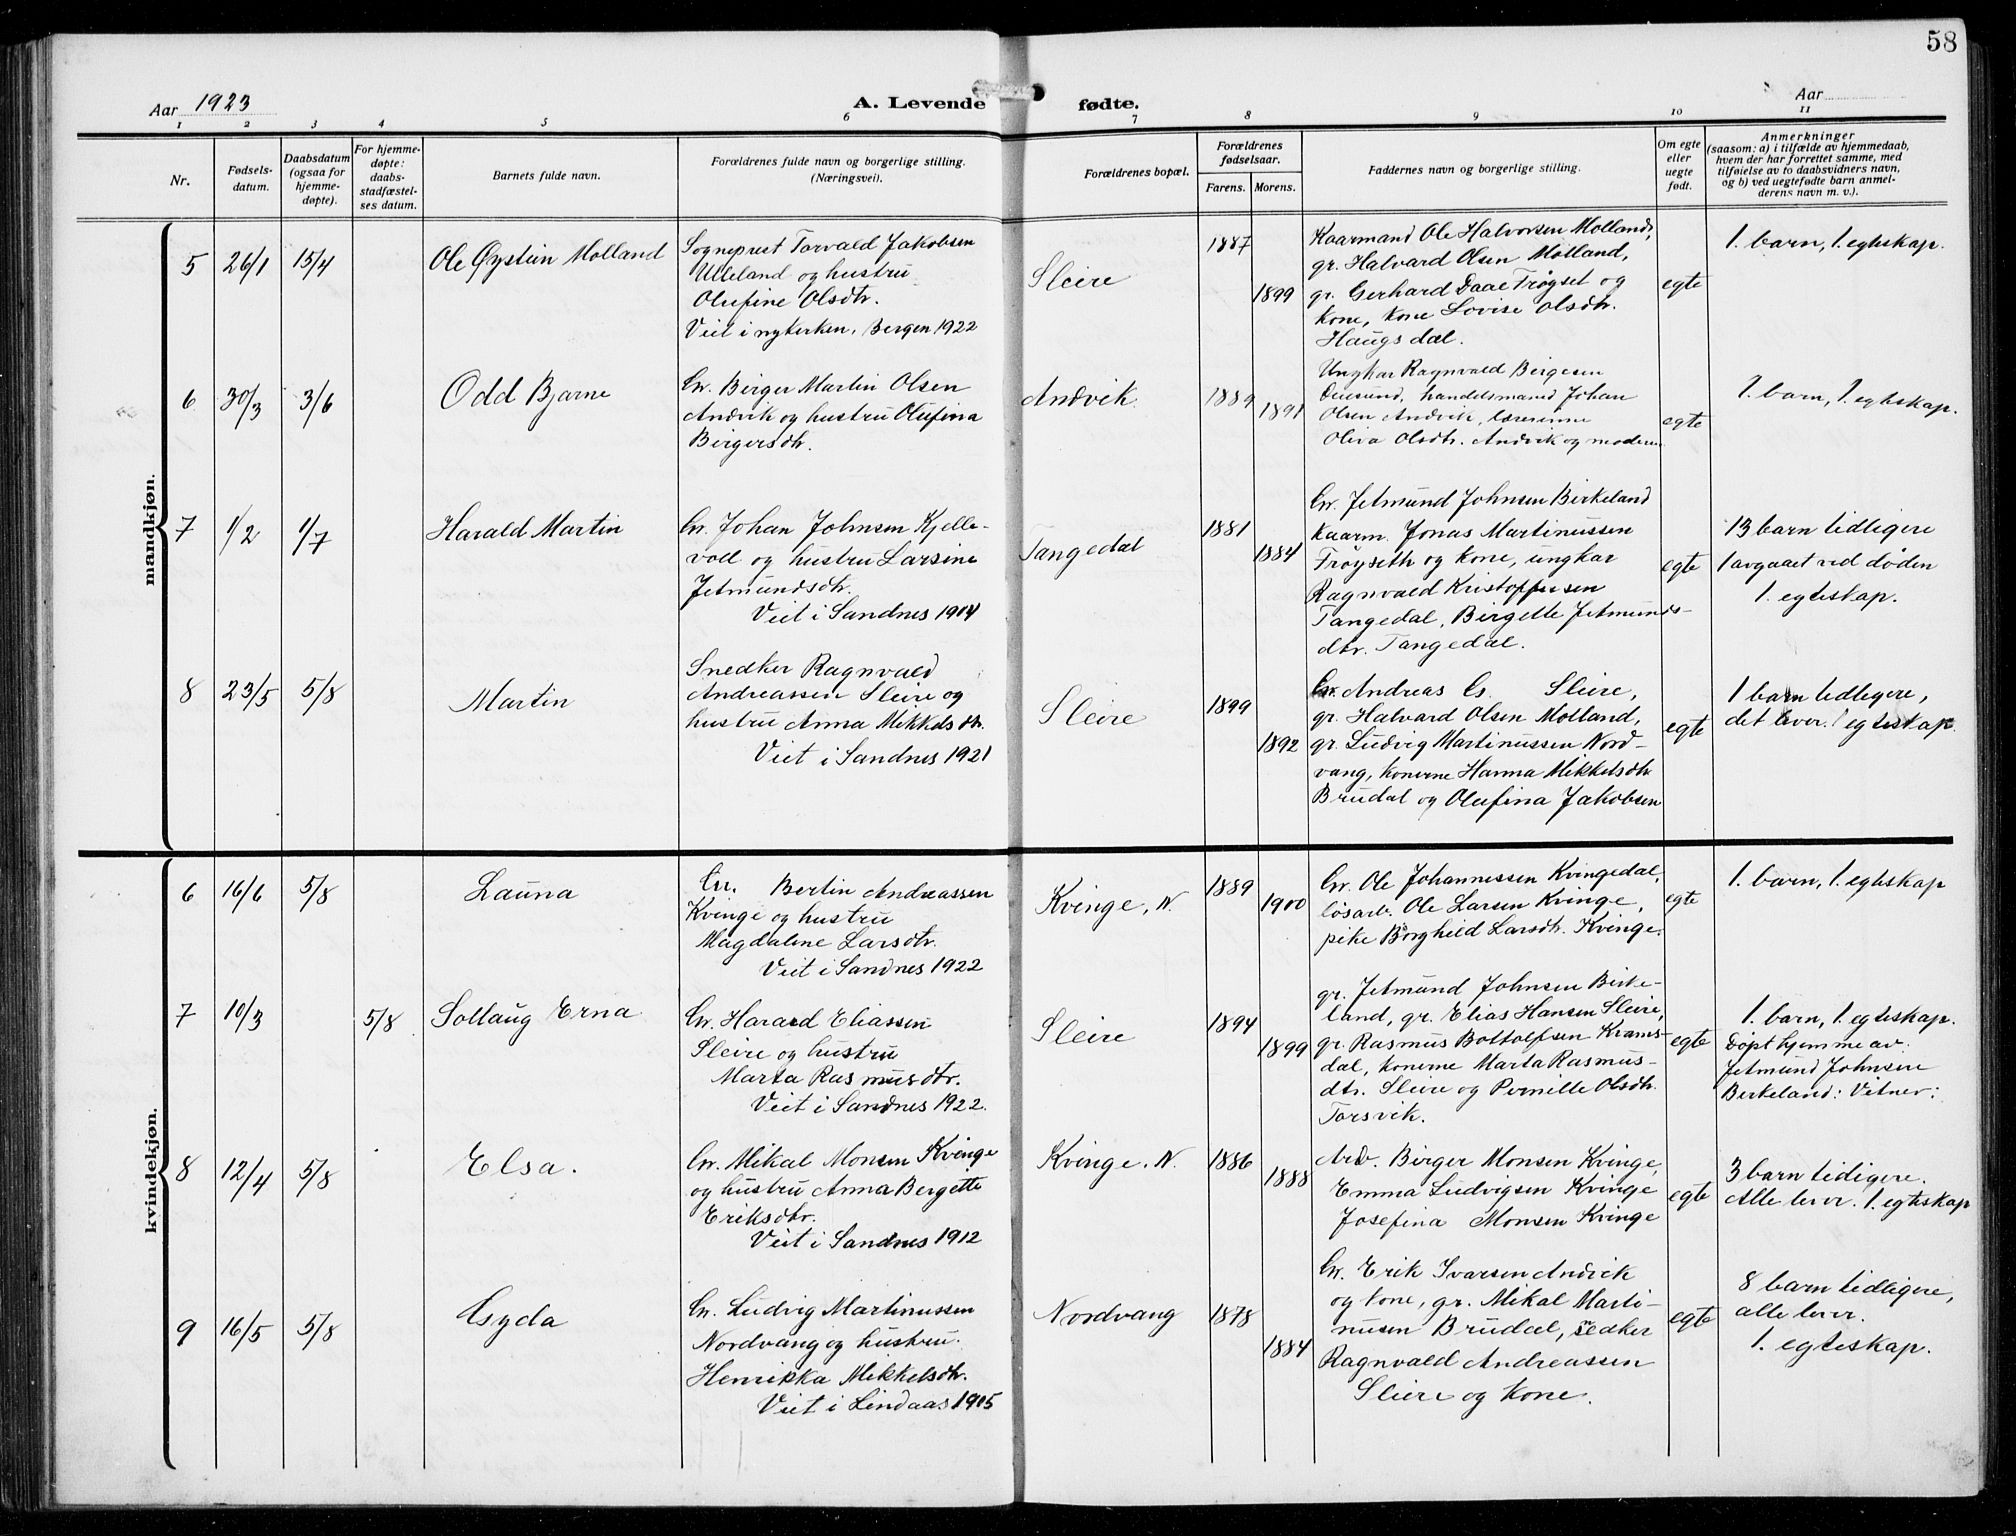 58
Aar 1923
A. Levende fødte.
Aar
1 2 3 4 5 6 7 8 9 10 11
Nr.
Fødsels-
datum.
Daabsdatum
(ogsaa for
hjemme-
døpte).
For hjemme-
døpte:
daabs-
stadfæstel-
ses datum.
Barnets fulde navn.
Forældrenes fulde navn og borgerlige stilling.
(Næringsvei).
Forældrenes bopæl.
Forældrenes
fødselsaar.
Farens. Morens.
Faddernes navn og borgerlige stilling.
Om egte
eller
uegte
født.
Anmerkninger
(saasom: a) i tilfælde av hjemmedaab,
hvem der har forrettet samme, med
tilføielse av to daabsvidners navn,
og b) ved uegtefødte barn anmel-
derens navn m. v.).
mandkjøn.
5 26/1 15/4
Ole Øystein Molland
Sogneprest Torvald Jakobsen
Ulleland og hustru
Olufine Olsdtr.
Viet i nykerken, Bergen 1922
Sleire
1887
1899
Kaarmand Ole Halvorsen Molland,
gr. Halvard Olsen Molland,
gr. Gerhard Daae Frøyset og
kone, kone Lovise Olsdtr.
Haugsdal.
egte
1. barn, 1. egteskap.
6 30/3 3/6
Odd Bjarne
Gr. Birger Martin Olsen
Andvik og hustru Olufina
Birgersdtr.
Andvik
1889
1891
Ungkar Ragnvald Birgesen
handelsmand Johan
Olsen Andvik, lærerinne
Oliva Olsdtr. Andvik og moderen
egte
1. barn, 1. egteskap.
7 1/2 1/7
Harald Martin
Gr. Johan Johnsen Kjelle-
vold og hustru Larsine
Jetmundsdtr.
Viet i Sandnes 1904
Tangedal
1881
1884
Gr. Jetmund Johnsen Birkeland
kaarm. Jonas Martinussen
Frøyseth og kone, ungkar
Ragnvald Kristoffersen
Tangedal, Birgette Jetmunds-
dtr. Tangedal.
egte
13 barn tidligere
1 avgaaet ved døden
1. egteskap.
8 23/5 5/8
Martin
Snedker Ragnvald
Andreassen Sleire og
hustru Anna Mikkelsdtr.
Viet i Sandnes 1921
Sleire
1899
1892
Gr. Andreas G. Sleire,
gr. Halvard Olsen Molland,
gr. Ludvig Martinussen Nord-
vang, konerne Hanna Mikkelsdtr
Brudal og Olufina Jakobsen
egte
1 barn tidligere,
det lever. 1 egteskap.
kvindekjøn.
6 16/6 5/8
Launa
Gr. Bertin Andreassen
Kvinge og hustru
Magdaline Larsdtr.
Viet i Sandnes 1922
Kvinge, N.
1889
1900
Gr. Ole Johannessen Kvingedal,
løsarb. Ole Larsen Kvinge,
pike Borghild Larsdtr. Kvinge.
egte
1. barn, 1. egteskap
7 10/3 5/8
Sollaug Erna
Gr. Harald Eliassen
Sleire og hustru
Marta Rasmusdtr.
Viet i Sandnes 1922.
Sleire
1894
1899
gr. Jetmund Johnsen Birke-
land, gr. Elias Hansen Sleire,
gr. Rasmus Bottolfsen Krams-
dal, konerne Marta Rasmus-
dtr. Sleire og Pernille Olsdtr.
Torsvik.
egte
1. barn, 1. egteskap.
Døpt hjemme av
Jetmund Johnsen
Birkeland: Vitner:
8 12/4 5/8
Elsa.
Gr. Mikal Monsen Kvinge
og hustru Anna Bergette
Eriksdtr.
Viet i Sandnes 1912
Kvinge, N.
1886
1888
Arb. Birger Monsen Kvinge,
Emma Ludvigsen Kvinge
Josefina Monsen Kvinge
egte
3 barn tidligere.
Alle lever. 1. egteskap
9 16/5 5/8
Gyda
Gr. Ludvig Martinussen
Nordvang og hustru
Henrikka Mikkelsdtr.
Viet i Lindaas 1905
Nordvang
1878
1884
Gr. Erik Ivarsen Andvik
og kone, gr. Mikal Marti-
nusen Brudal, snedker
Ragnvald Andreassen
Sleire og kone.
egte
8 barn tidligere,
alle lever.
1. egteskap.